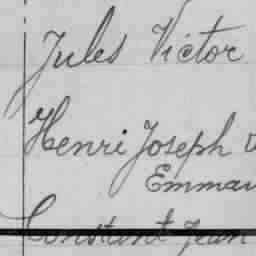 Jules Victor
Henri Joseph
Constant Jean